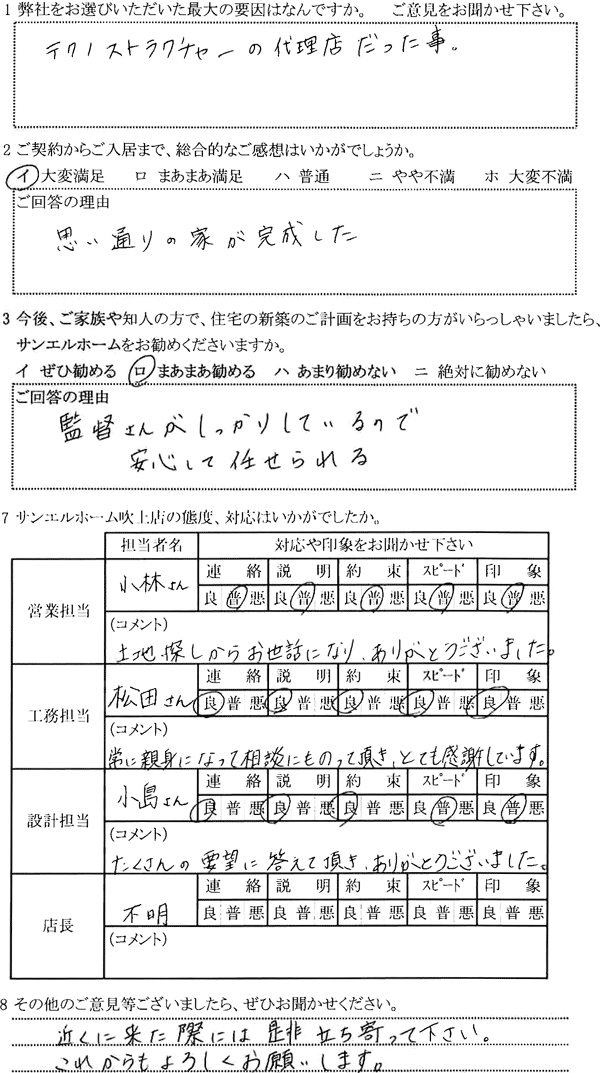 1 弊社をお選びいただいた最大の要因はなんですか。 ご意見をお聞かせ下さい。
テクノストラクチャーの代理店だった事。
2 ご契約からご入居まで、総合的なご感想はいかがでしょうか。
イ 大変満足 ロ まあまあ満足 ハ 普通 ニ やや不満 ホ 大変不満
ご回答の理由
思い通りの家が完成した
3 今後、ご家族や知人の方で、住宅の新築のご計画をお持ちの方がいらっしゃいましたら、
サンエルホームをお勧めくださいますか。
イ ぜひ勧める ロ まあまあ勧める ハ あまり勧めない ニ 絶対に勧めない
ご回答の理由
監督さんがしっかりしているので
安心して任せられる
7 サンエルホーム吹上店の態度、対応はいかがでしたか。
担当者名 対応や印象をお聞かせ下さい
営業担当 小林さん 連絡 説明 約束 スピード 印象
良 普 悪 良 普 悪 良 普 悪 良 普 悪 良 普 悪
(コメント)
土地探しからお世話になり、ありがとうございました。
工務担当 松田さん 連絡 説明 約束 スピード 印象
良 普 悪 良 普 悪 良 普 悪 良 普 悪 良 普 悪
(コメント)
常に親身になって相談にものって頂き、とても感謝しています。
設計担当 小島さん 連絡 説明 約束 スピード 印象
良 普 悪 良 普 悪 良 普 悪 良 普 悪 良 普 悪
(コメント)
たくさんの要望に答えて頂き、ありがとうございました。
店長 不明 連絡 説明 約束 スピード 印象
良 普 悪 良 普 悪 良 普 悪 良 普 悪 良 普 悪
(コメント)
8 その他のご意見等ございましたら、ぜひお聞かせください。
近くに来た際には是非立ち寄って下さい。
これからもよろしくお願いします。